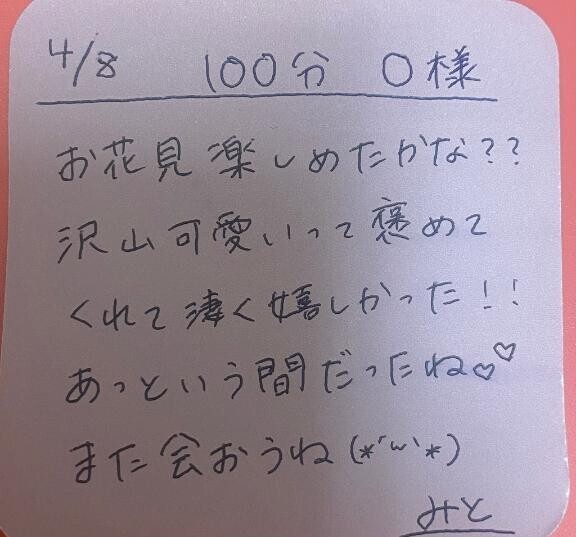 4/8 100分 O様
お花見楽しめたかな??
沢山可愛いって褒めて
くれて凄く嬉しかった!!
あっという間だったね♡♡
また会おうね(*´ω`*)
みと